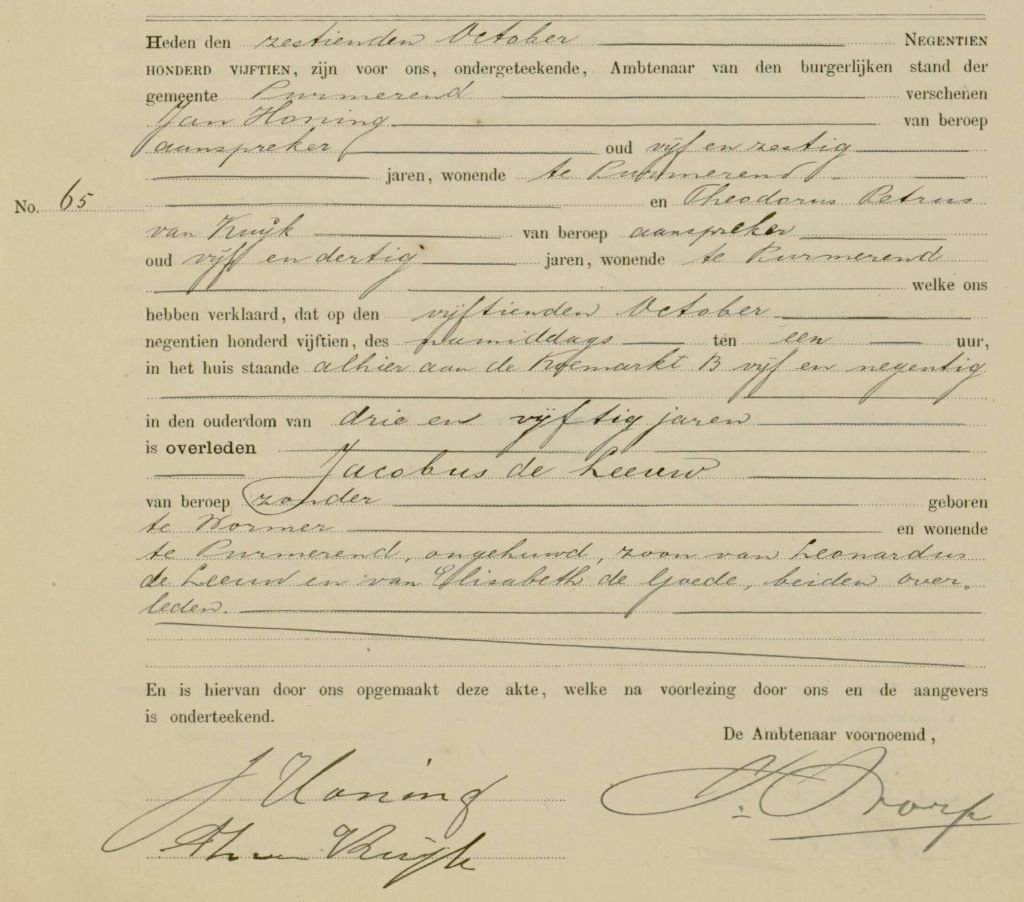 Heden den zestienden October NEGENTIEN
HONDERD VIJFTIEN, zijn voor ons, ondergeteekende, Ambtenaar van den burgerlijken stand der
gemeente Purmerend verschenen
Jan Honing van beroep
aanspreker oud vijf en zestig
jaren, wonende te Purmerend
No. 65
en Theodorus Petrus
van Kuijk van beroep aanspreker
oud vijf en dertig jaren, wonende te Purmerend
welke ons
hebben verklaard, dat op den vijftienden October
negentien honderd vijftien, des namiddags ten één uur,
in het huis staande alhier aan de Koemarkt B vijf en negentig
in den ouderdom van drie en vijftig jaren
is overleden
Jacobus de Leeuw
van beroep zonder geboren
te Wormer en wonende
te Purmerend, ongehuwd, zoon van Leonardus
de Leeuw en van Elisabeth de Goede, beiden over-
leden.
En is hiervan door ons opgemaakt deze akte, welke na voorlezing door ons en de aangevers
is onderteekend.
De Ambtenaar voornoemd,
J Honing
Th van Kuijk